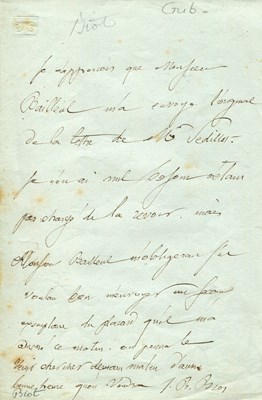 Biot
Je m'apperçois que Monsieur
Bailleul m'a envoyé l'original
de la lettre de Mr Sedillot.
Je n'en ai nul besoin n'étant
pas chargé de la revoir. mais
Monsieur Bailleul m'obligerait s'il
voulait bien m'envoyer un
exemplaire du placard qu'il m'a
ce matin. on pourra le
chercher demain matin d'aussi
bonne heure qu'on voudra J. B. Biot
Biot